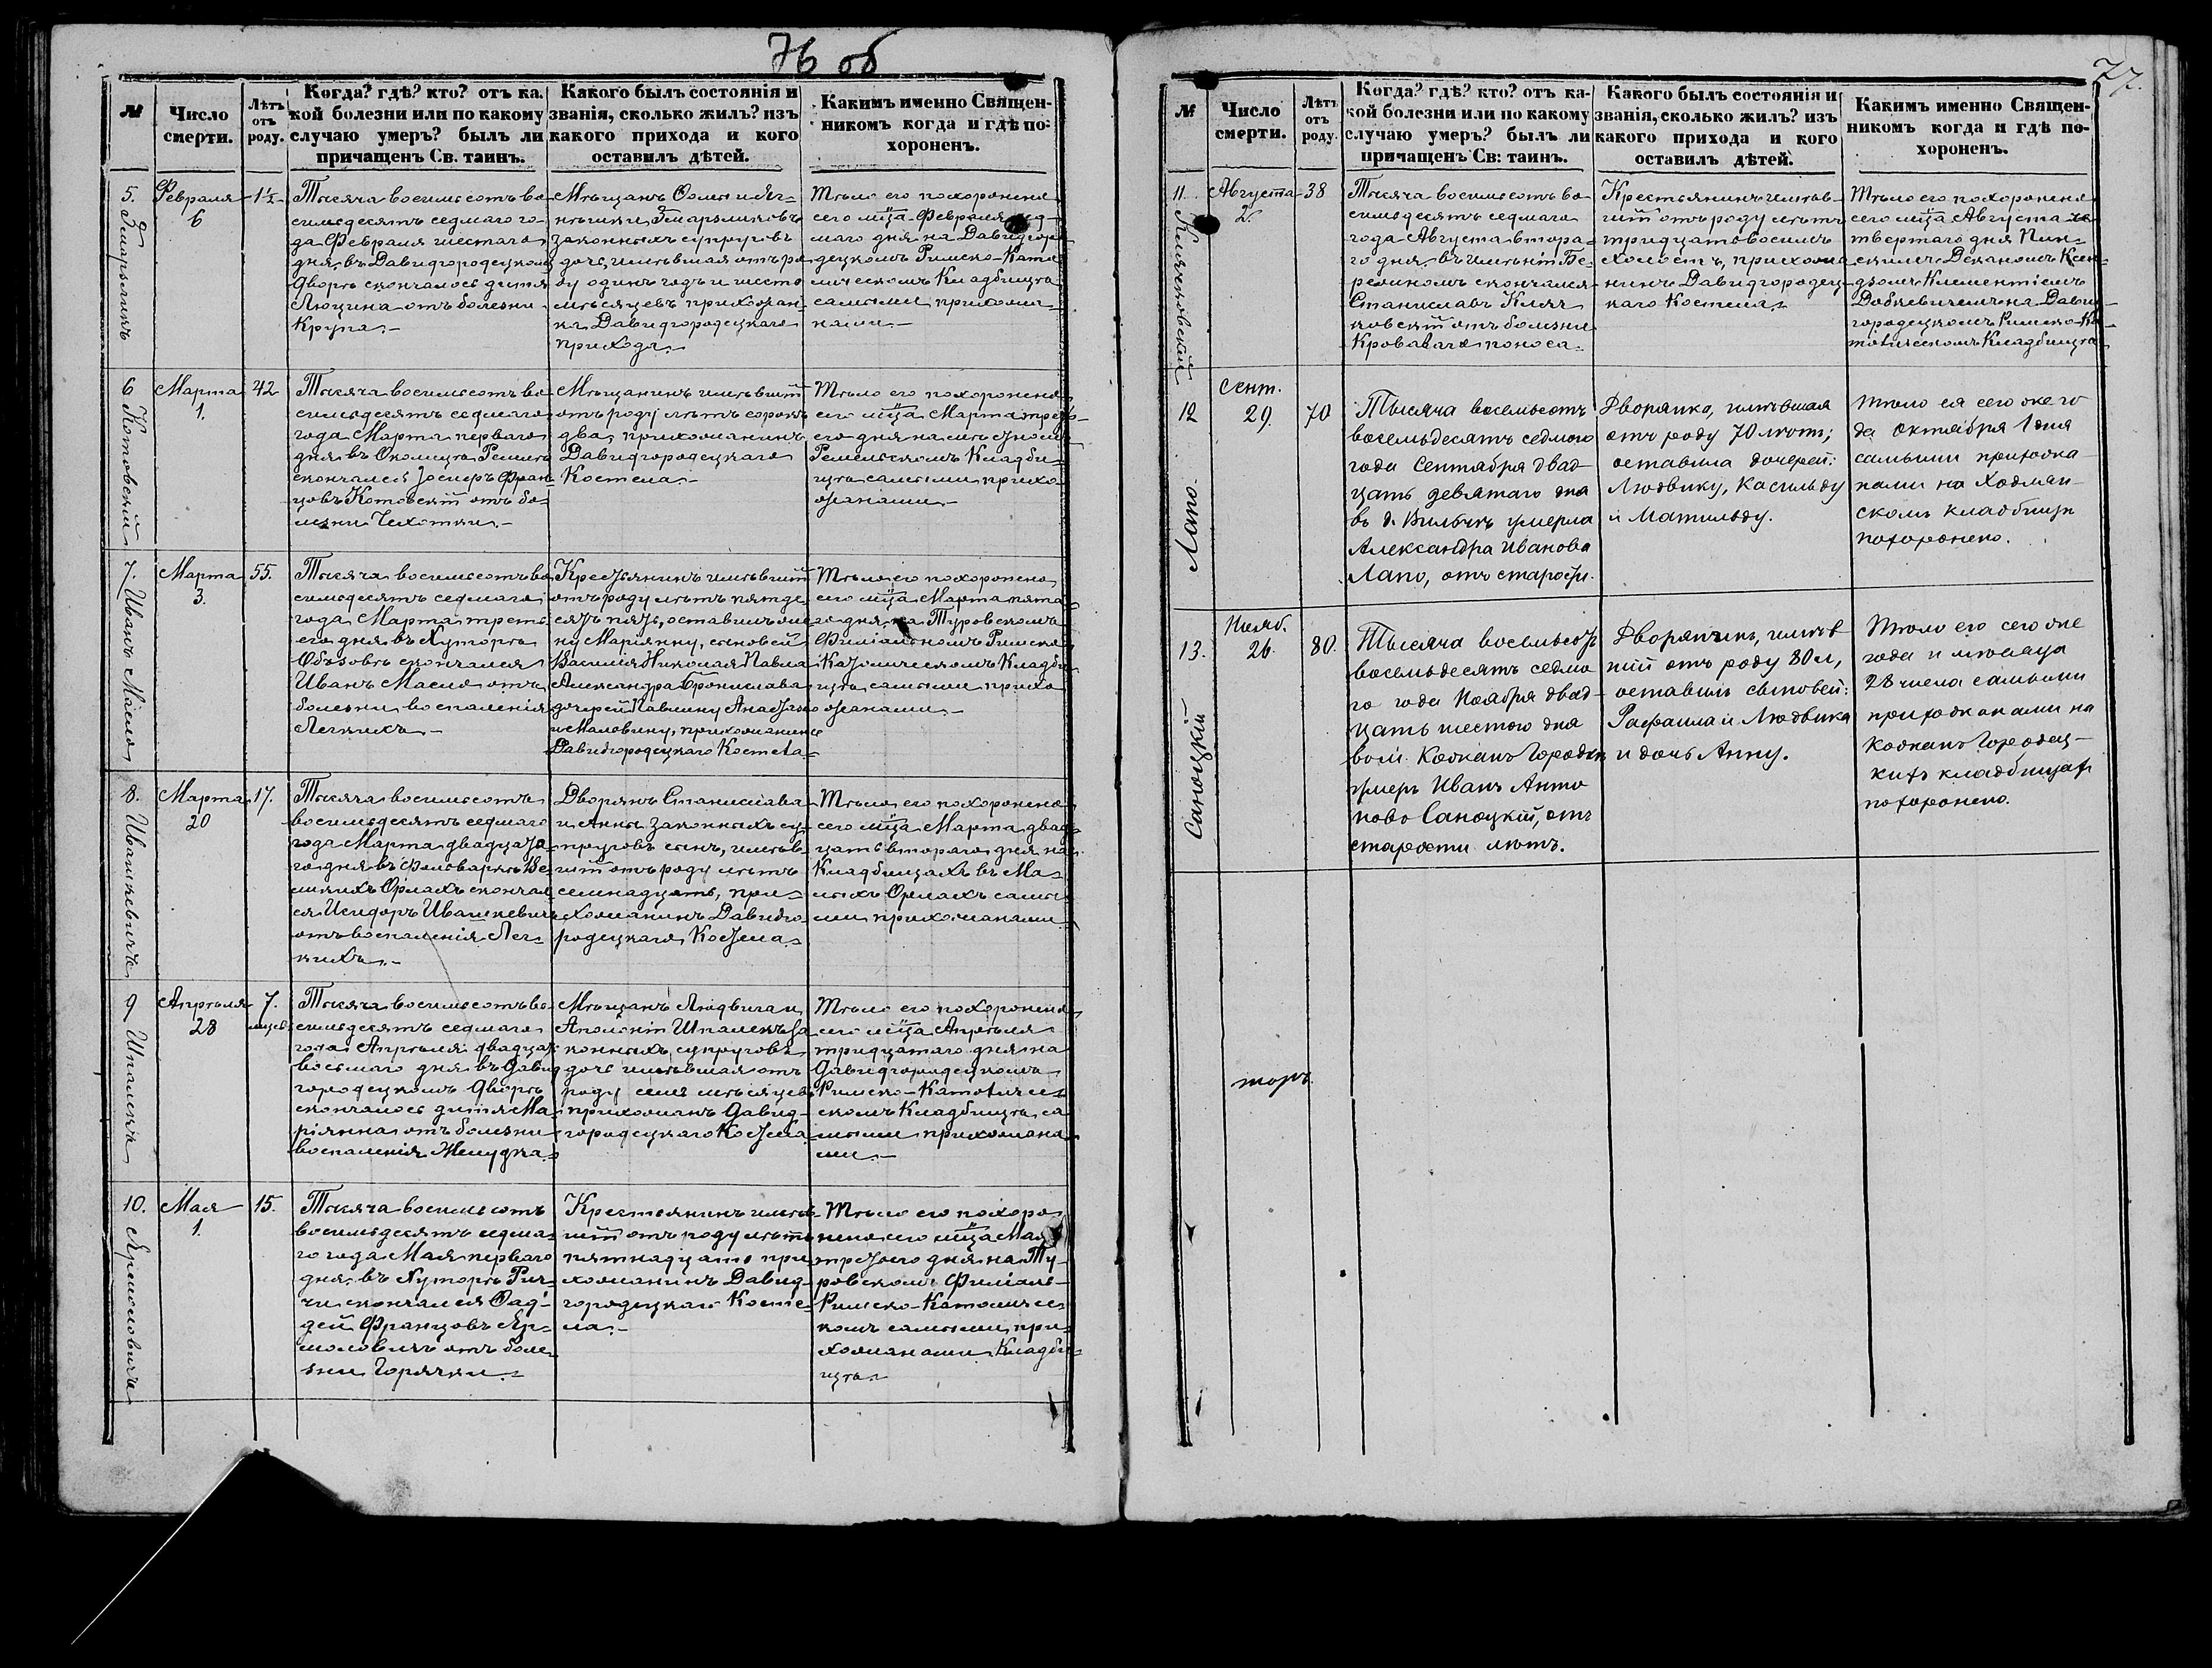 76 об
№
Число
смерти.
Лѣтъ
отъ
роду.
Когда? гдѣ? кто? отъ ка-
кой болезни или по какому
случаю умеръ? былъ ли
причащенъ Св. таинъ.
Какого былъ состоянія и
званія, сколько жилъ? изъ
какого прихода и кого
оставилъ дѣтей.
Какимъ именно Священ-
никомъ когда и гдѣ по-
хороненъ.
5.
Февраля
6
1½
Тысяча восемьсотъ во-
семьдесятъ седмаго го-
да Февраля шестаго
дня въ Давидгородецкомъ
Дворѣ скончалось дитя
Люцина отъ болезни
Крупа.-
Мѣщанъ Ѳомы и
законныхъ супруговъ
дочь, имѣвшая отъ ро-
ду одинъ годъ и шесть
мѣсяцевъ прихожан-
ка Давидгородецкаго
прихода.-
Тѣло его похоронено
сего мца Февраля сед-
маго дня на Давидгоро-
децкомъ Римско-Като-
лическомъ Кладбищѣ
самыми прихожа-
нами.-
6 Котовскій
Марта
1.
42
Тысяча восемьсотъ во-
семьдесятъ седмаго
года Марта перваго
дня въ Околицѣ Ремель
скончался Іосифъ Фран-
цовъ Котовскій отъ бо-
лезни Чахотки.-
Мѣщанинъ имѣвшій
отъ роду лѣтъ сорокъ
два, прихожанинъ
Давидгородецкаго
Костела.-
Тѣло его похоронено
сего мца Марта третья-
его дня на мѣстномъ
Ремельскомъ Кладби-
щѣ самыми прихо-
жанами.-
7. Иванъ Масло
Марта
3.
55.
Тысяча восемьсотъ во-
семьдесятъ седмаго
года Марта треть-
его дня въ Хуторѣ
скончался
Иванъ Масло отъ
болезни воспаленія
Легкихъ.-
Крестьянинъ имѣвшій
отъ роду лѣтъ пятьде-
сятъ пять, оставилъ же-
ну Маріанну, сыновей
Василія Николая Павла
Александра Бронислава
дочерей Павлину Анастасію
и Мальвину, прихожанинъ
Давидгородецкаго Костела.-
Тѣло его похоронено
сего мца Марта пята-
го дня на Туровскомъ
Филіальномъ Римско-
Католическомъ Кладби-
щѣ самыми прихо-
жанами.-
8. Ивашкевичъ
Марта
20
17.
Тысяча восемьсотъ
восемьдесятъ седмаго
года Марта двадцата-
го дня въ Фольваркѣ Ве-
ликихъ Орлахъ скончал-
ся Исидоръ Ивашкевичъ
отъ воспаленія Лег-
кихъ.-
Дворянъ Станислава
и Анны законныхъ су-
пруговъ сынъ, имѣв-
шій отъ роду лѣтъ
семнадцать, при-
хожанинъ Давидго-
родецкаго Костела.-
Тѣло его похоронено
сего мца Марта двад-
цать втораго дня на
Кладбищахъ въ Ма-
лыхъ Орлахъ самы-
ми прихожанами
9 Шпаленя
Апрѣля
28
7.
мцев.
Тысяча восемьсотъ во-
семьдесятъ седмаго
года Апрѣля двадцать
восьмаго дня въ Давид-
городецкомъ Дворѣ
скончалось дитя Ма-
ріанна отъ болезни
воспаленія Желудка.-
Мѣщанъ Людвига и
Аполоніи Шпаленя за-
конныхъ супруговъ
дочь имѣвшая отъ
роду семь мѣсяцевъ
прихожанъ Давид-
городецкаго Костела
Тѣло его похоронено
сего мца Апрѣля
тридцатаго дня на
Давидгородецкомъ
Римско-Католиче-
скомъ Кладбищѣ са-
мыми прихожана-
ми.-
10. Ярмоловичъ
Мая
1.
15.
Тысяча восемьсотъ
восемьдесятъ седма-
го года Мая перваго
дня въ Хуторѣ Рич-
чи скончался Ѳад-
дей Францовъ Яр-
моловичъ отъ боле-
зни Горячки.-
Крестьянинъ имѣв-
шій отъ роду лѣтъ
пятнадцать при-
хожанинъ Давид-
городецкаго Косте-
ла.-
Тѣло его похоро-
нено сего мца Мая
третьяго дня на Ту-
ровскомъ Филіаль-
Римско-Католичес-
комъ самыми при-
хожанами Кладби-
щѣ.-
77.
№
Число
смерти.
Лѣтъ
отъ
роду.
Когда? гдѣ? кто? отъ ка-
кой болезни или по какому
случаю умеръ? былъ ли
причащенъ Св: таинъ.
Какого былъ состоянія и
званія, сколько жилъ? изъ
какого прихода и кого
оставилъ дѣтей.
Какимъ именно Священ-
никомъ когда и гдѣ по-
хороненъ.
11. Клячковскій
Августа
2.
38
Тысяча восемьсотъ во-
семьдесятъ седмаго
года Августа втора-
го дня въ имѣніи Бе-
скончался
Станиславъ Кляч-
ковскій отъ болезни
Кроваваго поноса.-
Крестьянинъ имѣв-
шій отъ роду лѣтъ
тридцать восемь
холостъ, прихожа-
нинъ Давидгородец-
каго Костела.-
Тѣло его похоронено
сего мца Августа че-
твертаго дня Пин-
скимъ Деканомъ Ксен-
дзомъ Климентіемъ
на Давид-
городецкомъ Римско-Ка-
толическомъ Кладбищѣ
12 Лапо
Сент.
29.
70
Тысяча восемьсотъ
восемьдесятъ седмого
года Сентября двад-
цать девятаго дня
въ д. умерла
Александра Иванова
Лапо, отъ старости.
Дворянка, имѣвшая
отъ роду 70 лѣтъ;
оставила дочерей:
Людвику, Касильду
и Матильду.
Тѣло ея сего же го-
да Октября 1 дня
самыми прихожа-
нами на
скомъ кладбищѣ
похоронено.
13. Саноцкій
Нояб.
26.
80.
Тысяча восемьсотъ
восемьдесятъ седмо-
го года Ноября двад-
цать шестого дня
въ им. Кожанъ Городкѣ
умеръ Иванъ Анто-
новъ Саноцкій, отъ
старости лѣтъ.
Дворянинъ, имѣв-
шій отъ роду 80 л,
оставилъ сыновей:
Рафаила и Людвика
и дочь Анну.
Тѣло его сего же
года и мѣсяца
28 числа самыми
прихожанами на
Кожанъ Городец-
кихъ кладбищахъ
похоронено.